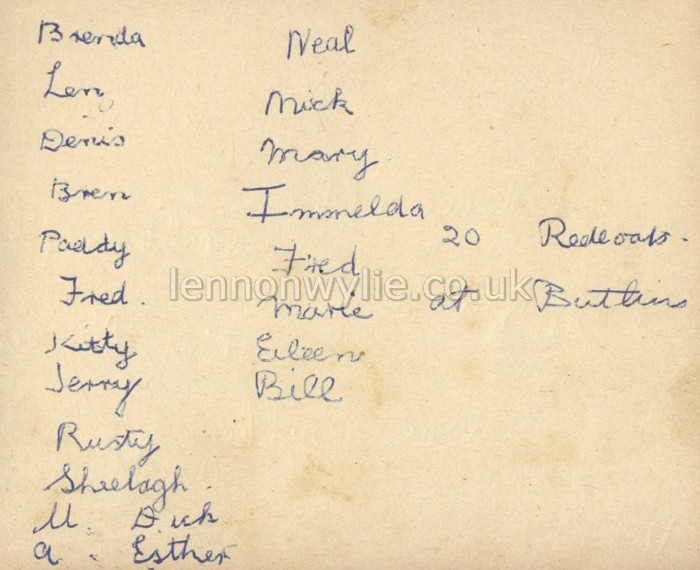 Brenda
Len
Denis
Bren
Paddy
Fred.
Kitty
Jerry
Rusty
Sheelagh.
U. Dick
a. Esther
Neal
Mick
Mary
Immelda
Fred
Marie
Eileen
Bill
20 Redcoats.
at Butlins
lennonwylie.co.uk